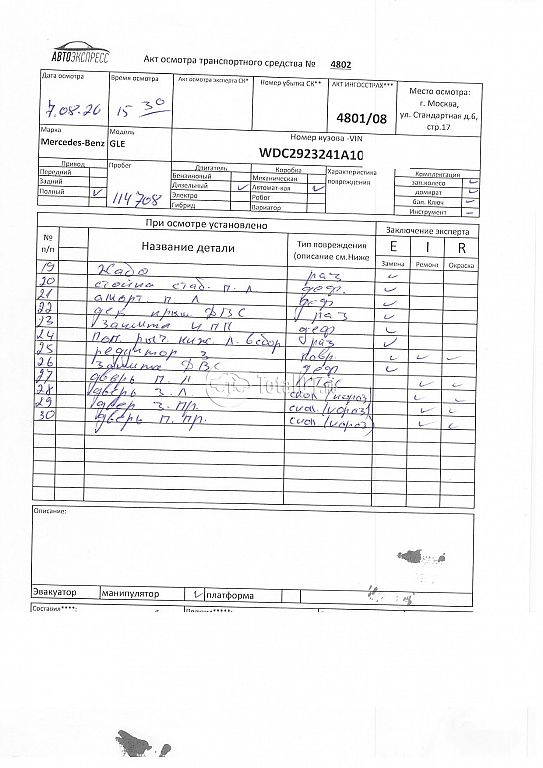 АВТОЭКСПРЕСС
Акт осмотра транспортного средства № 4802
Дата осмотра Время осмотра Акт осмотра эксперта СК* Номер убытка СК** АКТ ИНГОССТРАХ*** Место осмотра:
7.08.20 15 30 4801/08 г. Москва,
ул. Стандартная д.6,
стр.17
Марка Модель Номер кузова -VIN
Mercedes-Benz GLE WDC2923241A10
Привод Пробег Двигатель Коробка Характеристика повреждения Комплектация
Передний Бензиновый Механическая зап.колесо
Задний Дизельный Автомат-кая домкрат
Полный 114708 Электро Робот бал. Ключ
Гибрид Вариатор Инструмент
При осмотре установлено Заключение эксперта
№ п/п Название детали Тип повреждения (описание см.Ниже E I R
Замена Ремонт Окраска
19 раз
20 стойка стаб. п. л деф.
21 аморт. п. л деф
22 ДВС раз
23 защита деф
24 поп. рыч. ниж. л. в сбор раз
25 редуктор з повр.
26 защита ДВС деф
27 дверь п. л
28 дверь з. л. скол. (кораз)
29 двер з. пр. скол. (кораз)
30 дверь п. пр. скол (кораз)
Описание:
Эвакуатор манипулятор платформа
Составил****: